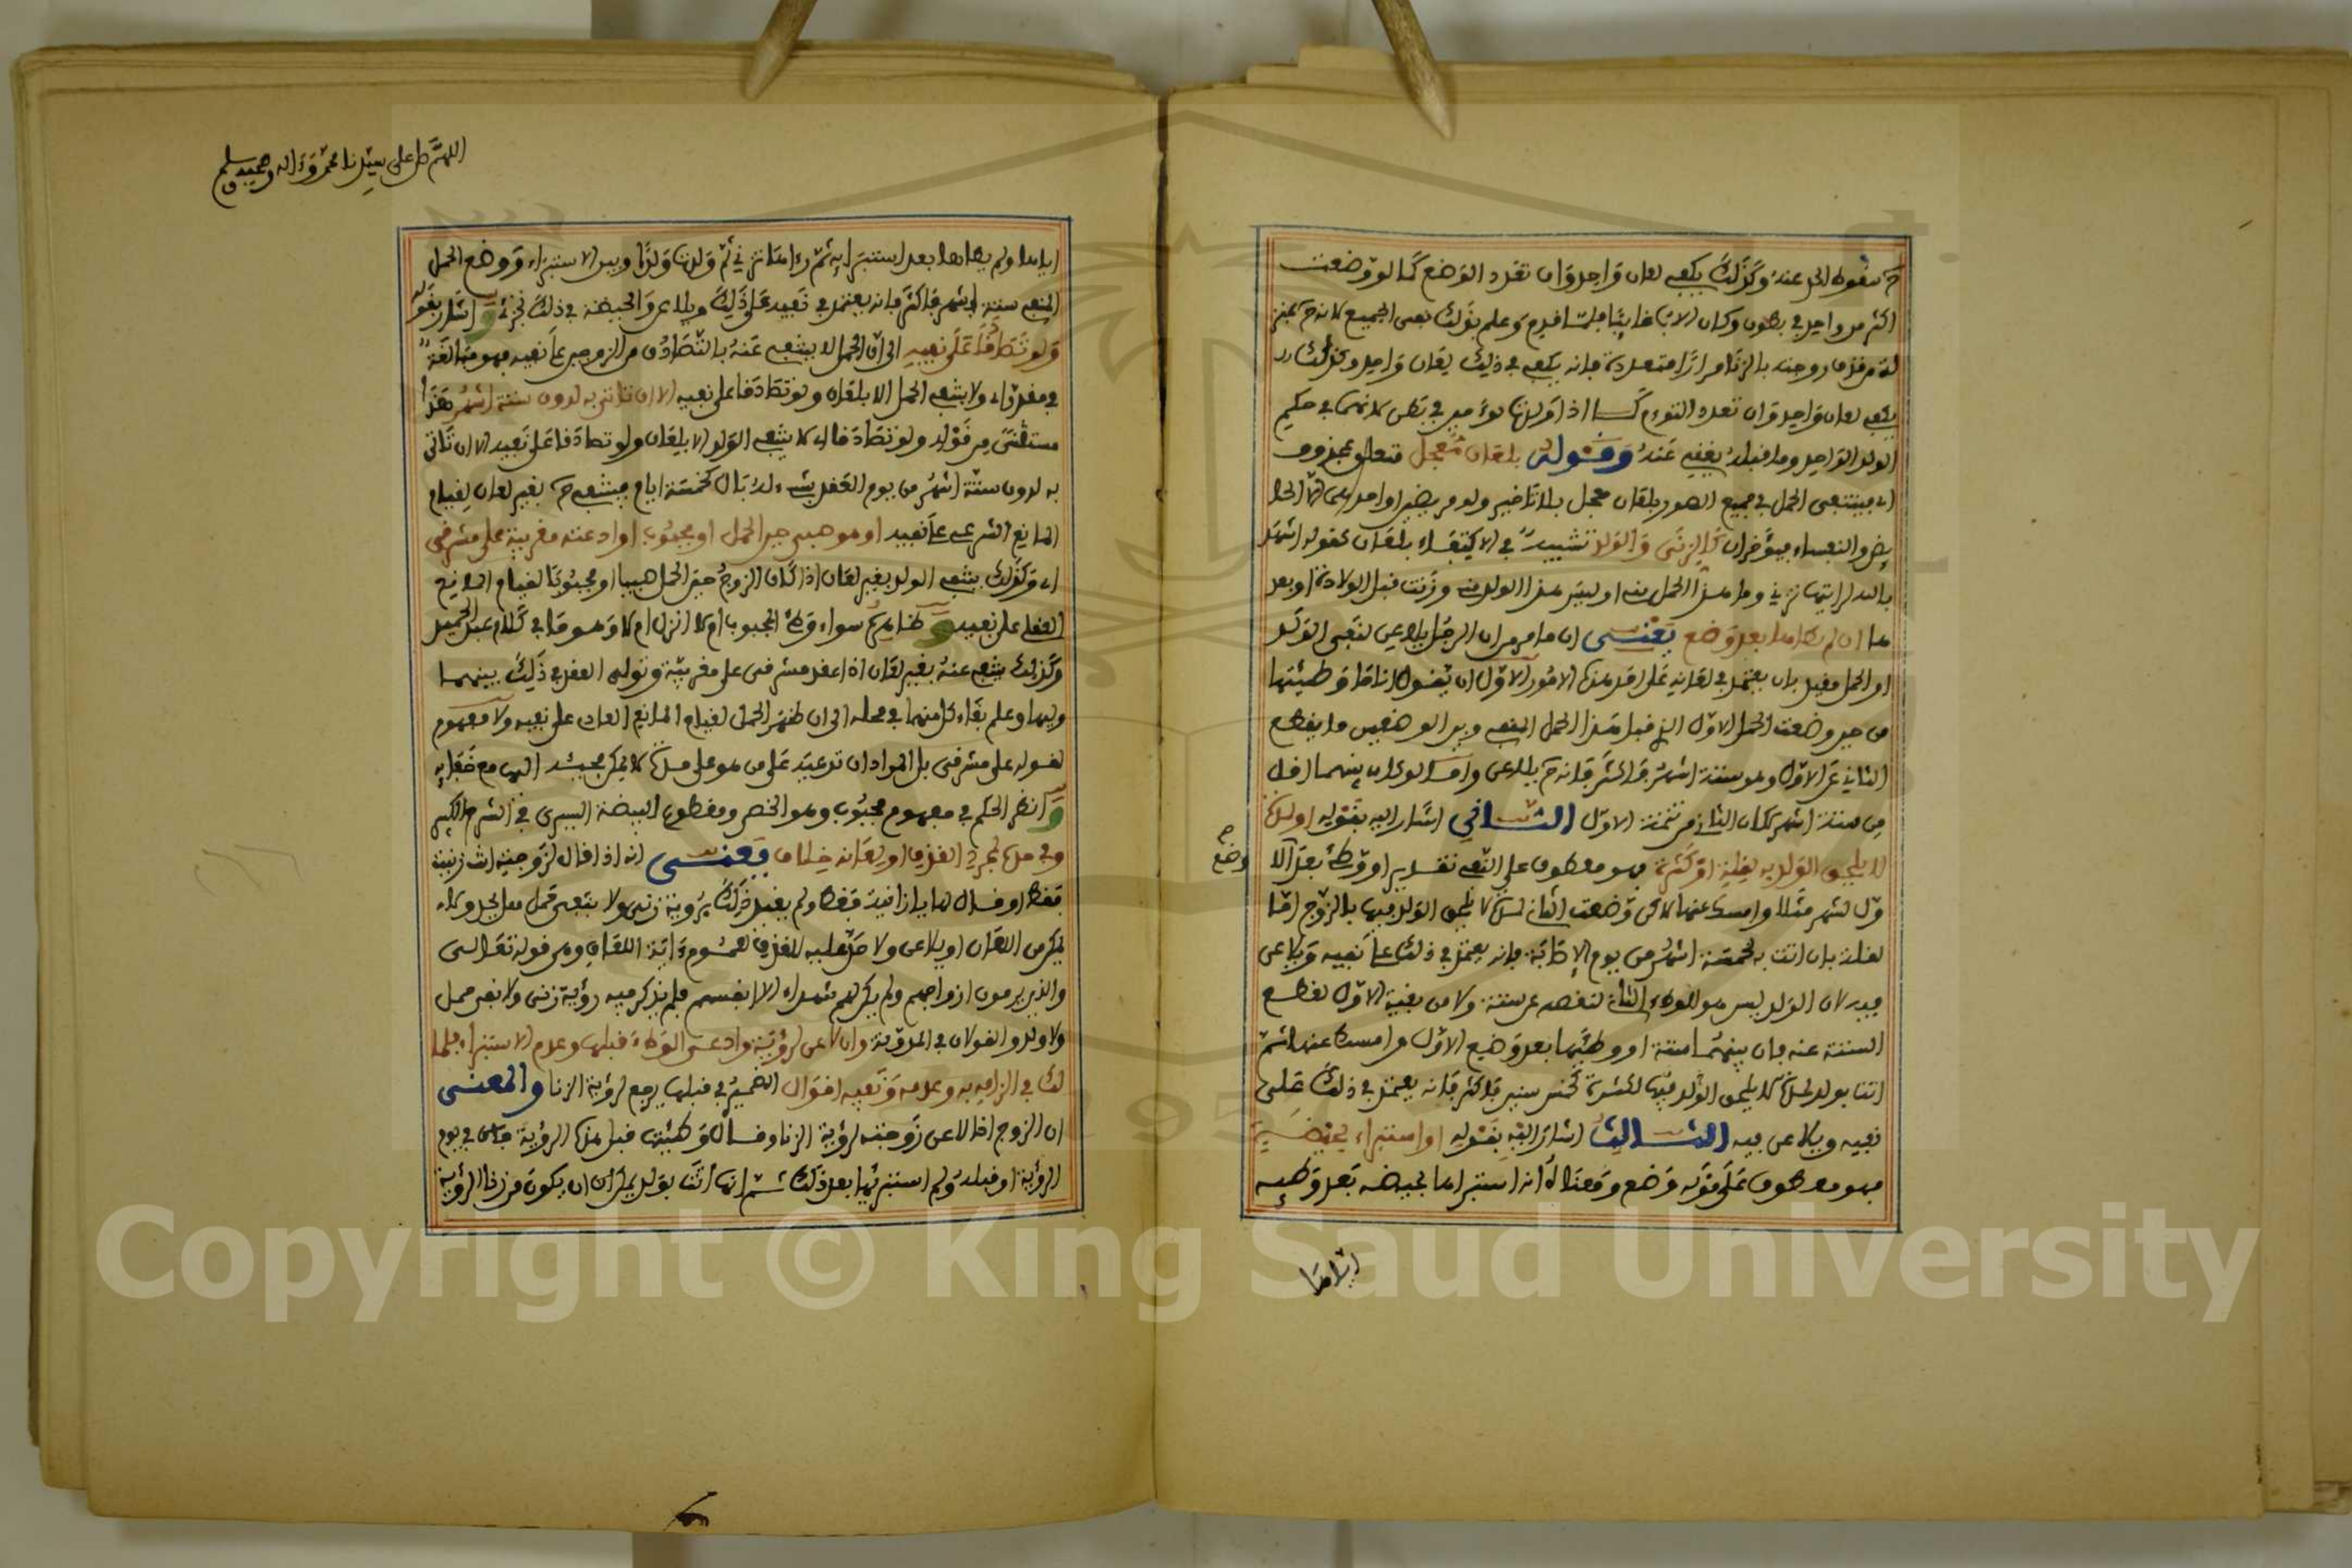 ح سقوط الحد عنه وكذلك يكفي لعان واحد وان تعدد الوضع كما لو وضعت
اكثر من واحد في بطون وكان الاب غائبا فلما قدم وعلم بذلك نفى الجميع لانه ح بمنز
لة من قذف زوجته بالزنا مرارا متعددة فانه يكفي في ذلك لعان واحد وكذلك
يكفي لعان واحد وان تعدد التوءم كما اذا ولدت توءمين في بطن لانهما في حكم
الولد الواحد وما قبله يغني عنه وقوله بلعان معجل متعلق بمحذوف
اي فينتفي الحمل في جميع الصور بلعان معجل بلا تاخير ولو مريضين او احدهما الا الحا
يض والنفساء فيؤخران كالزنى والولد تشبيه في الاكتفاء بلعان كقوله اشهد
بالله لرايتها تزني وما هذا الحمل مني او ليس هذا الولد مني وزنت قبل الولادة او بعد
ها ان لم يطاها بعد وضع يعني ان ما مر من ان الرجل يلاعن لنفي الولد
او الحمل مقيد بان يعتمد في لعانه على احد هذه الامور الاول ان يقول انا ما وطئتها
من حين وضعت الحمل الاول الذي قبل هذا الحمل المنفي وبين الوضعين ما يقطع
الثاني عن الاول وهو ستة اشهر فاكثر فانه ح يلاعن واما لو كان بينهما اقل
من ستة اشهر لكان الثاني من تتمة الاول الثاني اشار اليه بقوله او لمدة
لا يلحق الولد به لقلة او كثرة فهو معطوف على النفي تقديرا ووطئ بعد الا
ول لشهر مثلا وامسك عنها لكن وضعت الثاني لمدة لا يلحق الولد فيها بالزوج اما
لقلة بان اتت به لخمسة اشهر من يوم الاصابة فانه يعتمد في ذلك على نفيه ويلاعن
فيه لان الولد ليس هو للوطء الثاني لنقصه عن ستة ولا من بقية الاول لقطع
الستة عنه فان بينهما ستة او وطئها بعد وضع الاول وامسك عنها ثم
اتت بولد لمدة لا يلحق الولد فيها لكثرة كخمس سنين فاكثر فانه يعتمد في ذلك على
نفيه ويلاعن فيه الثالث اشار اليه بقوله او استبراء بحيضة
فهو معطوف على قوله وضع ومعناه انه استبراها بحيضة بعد وطئه
وضع
ح
ايامها
اللهم صل على سيدنا محمد وءاله وصحبه وسلم
اياها ولم يطاها بعد استبرائه ثم رءاها تزني ثم ولدت ولدا وبين الاستبراء ووضع الحمل
المنفي ستة اشهر فاكثر فانه يعتمد في نفيه على ذلك ويلاعن والحيضة في ذلك تجزئ و اشار بقوله
ولو تصادقا على نفيه الى ان الحمل لا ينتفي عنه بالتصادق من الزوجين على نفيه فهو مبالغة
في مقدر اي ولا ينتفي الحمل الا بلعان ولو تصادقا على نفيه الا ان تاتي به لدون ستة اشهر هذا
مستثنى من قوله ولو تصادقا اي لا ينتفي الولد الا بلعان ولو تصادقا على نفيه الا ان تاتي
به لدون ستة اشهر من يوم العقد بشيء له بال كخمسة ايام فينتفي ح بغير لعان لقيام
المانع الشرعي على نفيه او هو صبي حين الحمل او مجبوب او ادعته مغربية على مشرقي
اي وكذلك ينتفي الولد بغير لعان اذا كان الزوج حين الحمل صبيا او مجبوبا لقيام المانع
العقلي على نفيه و ظاهره سواء وطئ المجبوب ام لا انزل ام لا وهو ما في كلام عبد الحميد
وكذلك ينتفي عنه بغير لعان اذا عقد مشرقي على مغربية وتولى العقد في ذلك بينهما
وليهما وعلم بقاء كل منهما في محله الى ان ظهر الحمل لقيام المانع العادي على نفيه ولا مفهوم
لقوله على مشرقي بل المراد ان تدعيه على من هو على مدة لا يمكن مجيئه اليها مع خفائه
و انظر الحكم في مفهوم مجبوب وهو الخصي ومقطوع البيضة اليسرى في الشرح الكبير
وفي حده بمجرد القذف او لعانه خلاف يعني انه اذا قال لزوجته انت زنيت
فقط او قال لها يا زانية فقط ولم يقيد ذلك برؤية زنى ولا بنفي حمل هل يحد ولا
يمكن من اللعان او يلاعن ولا حد عليه للقذف لعموم ءاية اللعان وهي قوله تعالى
والذين يرمون ازواجهم ولم يكن لهم شهداء الا انفسهم فلم يذكر فيه رؤية زنى ولا نفي حمل
ولا ولد والقولان في المدونة وان لاعن لرؤية وادعى الوطء قبلها وعدم الاستبراء فلما
لك في الزامه به وعدمه ونفيه اقوال الضمير في قبلها يرجع لرؤية الزنا والمعنى
ان الزوج اذا لاعن زوجته لرؤية الزنا وقال وطئتها قبل هذه الرؤية في يوم
الرؤية او قبله ولم استبرئها بعد ذلك ثم انها اتت بولد يمكن ان يكون من زنا الرؤية